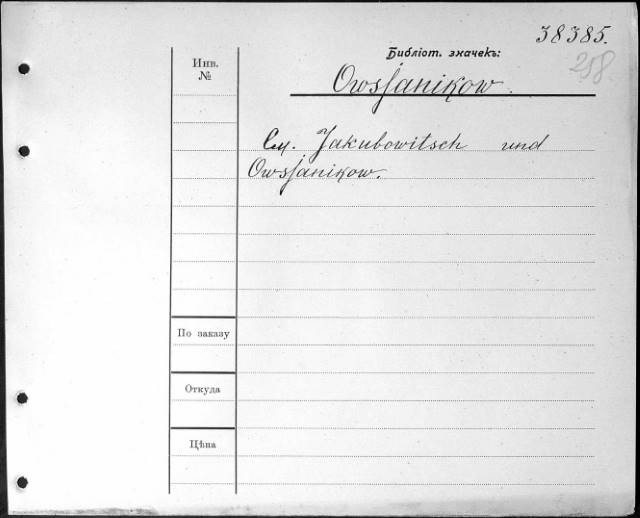 38385.
Библіот. значекъ:
258
Инв.
№
Owsjanikow.
См. Jakubowitsch und
Owsjanikow.
По заказу
Откуда
Цѣна